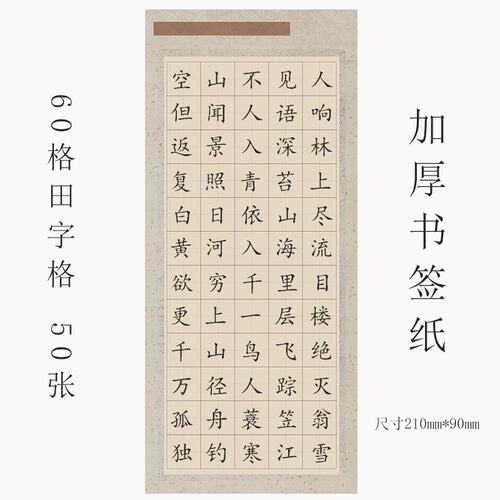 60格田字格 50张
空山不见人
但闻人语响
返景入深林
复照青苔上
白日依山尽
黄河入海流
欲穷千里目
更上一层楼
千山鸟飞绝
万径人踪灭
孤舟蓑笠翁
独钓寒江雪
加厚书签纸
尺寸210mm*90mm